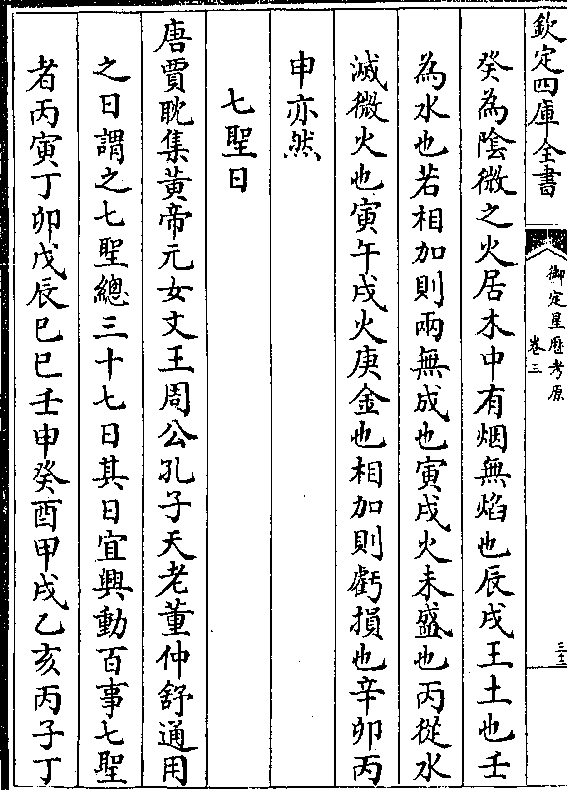 欽定四庫全書
御定星歴考原
卷三
三十二
癸為陰微之火居木中有烟無焰也辰戌王土也壬
為水也若相加則兩無成也寅戌火未盛也丙從水
滅微火也寅午戌火庚金也相加則虧損也辛卯丙
申亦然
七聖日
唐賈耽集黃帝元女文王周公孔子天老董仲舒通用
之日謂之七聖總三十七日其日宜興動百事七聖
者丙寅丁卯戊辰巳巳壬申癸酉甲戌乙亥丙子丁